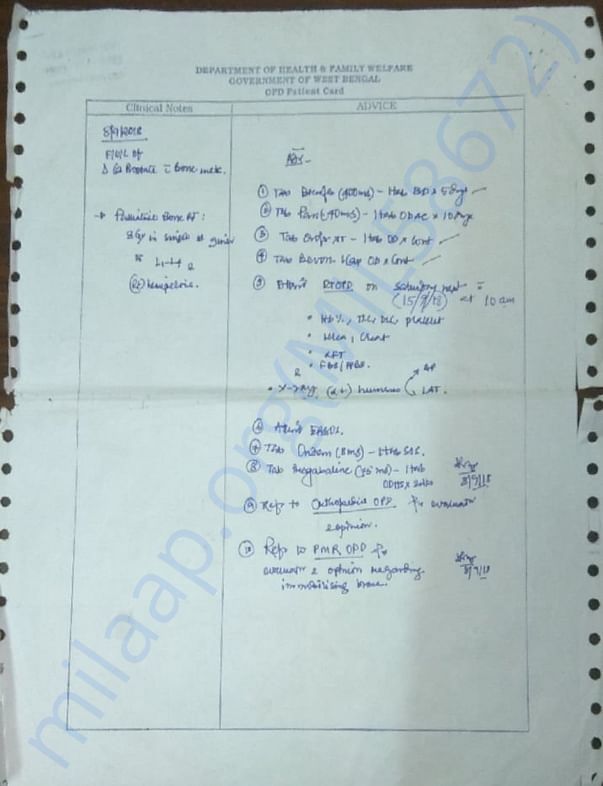 DEPARTMENT OF HEALTH & FAMILY WELFARE
GOVERNMENT OF WEST BENGAL
OPD Patient Card
Clinical Notes
ADVICE
8/9/2018
Bone mets.
→ Palliative Bone RT:
8Gy in single
L1-L4
(Rt) hemipelvis.
Adv-
① Tab (400mg) - 1tab BD x 5days
② Tab Pan (40mg) - 1tab OD AC x 10days
③ Tab - 1tab OD x Cont
④ Tab OD x Cont
⑤ Attend RTOPD on Saturday next
(15/9/18) at 10 am
• Hb%, TLC, DLC, platelet
• Urea, Creat
• LFT
• FBS/PPBS.
&
• X-ray, humerus AP
LAT.
⑥ Attend
⑦ Tab (8mg) - 1tab SOS.
⑧ Tab (75mg) - 1tab
8/9/18
⑨ Refer to Orthopedics OPD for evaluation
& opinion.
⑩ Refer to PMR OPD for
evaluation & opinion regarding
immobilising brace.
8/9/18
milaap.org(MIL58672)